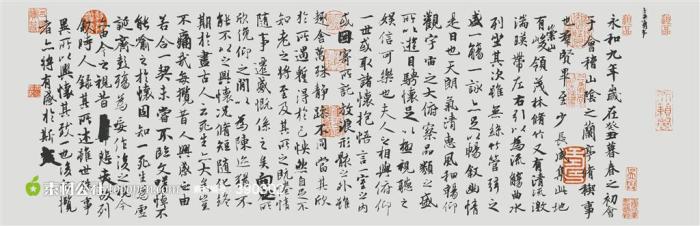 永和九年歲在癸丑暮春之初會
于會稽山陰之蘭亭脩稧事
也羣賢畢至少長咸集此地
有崇山峻領茂林脩竹又有清流激
湍暎帶左右引以為流觴曲水
列坐其次雖無絲竹管弦之
盛一觴一詠亦足以暢敘幽情
是日也天朗氣清惠風和暢仰
觀宇宙之大俯察品類之盛
所以遊目騁懷足以極視聽之
娛信可樂也夫人之相與俯仰
一世或取諸懷抱悟言一室之內
或因寄所託放浪形骸之外雖
趣舍萬殊靜躁不同當其欣
於所遇蹔得於己怏然自足不
知老之將至及其所之既惓情
隨事遷感慨係之矣向之所
欣俛仰之閒以為陳迹猶不
能不以之興懷況脩短隨化終
期於盡古人云死生亦大矣豈
不痛哉每攬昔人興感之由
若合一契未嘗不臨文嗟悼不
能喻之於懷固知一死生為虛
誕齊彭殤為妄作後之視今
亦由今之視昔悲夫故列
敘時人錄其所述雖世殊事
異所以興懷其致一也後之攬
者亦將有感於斯
素材公社 tooopen.com